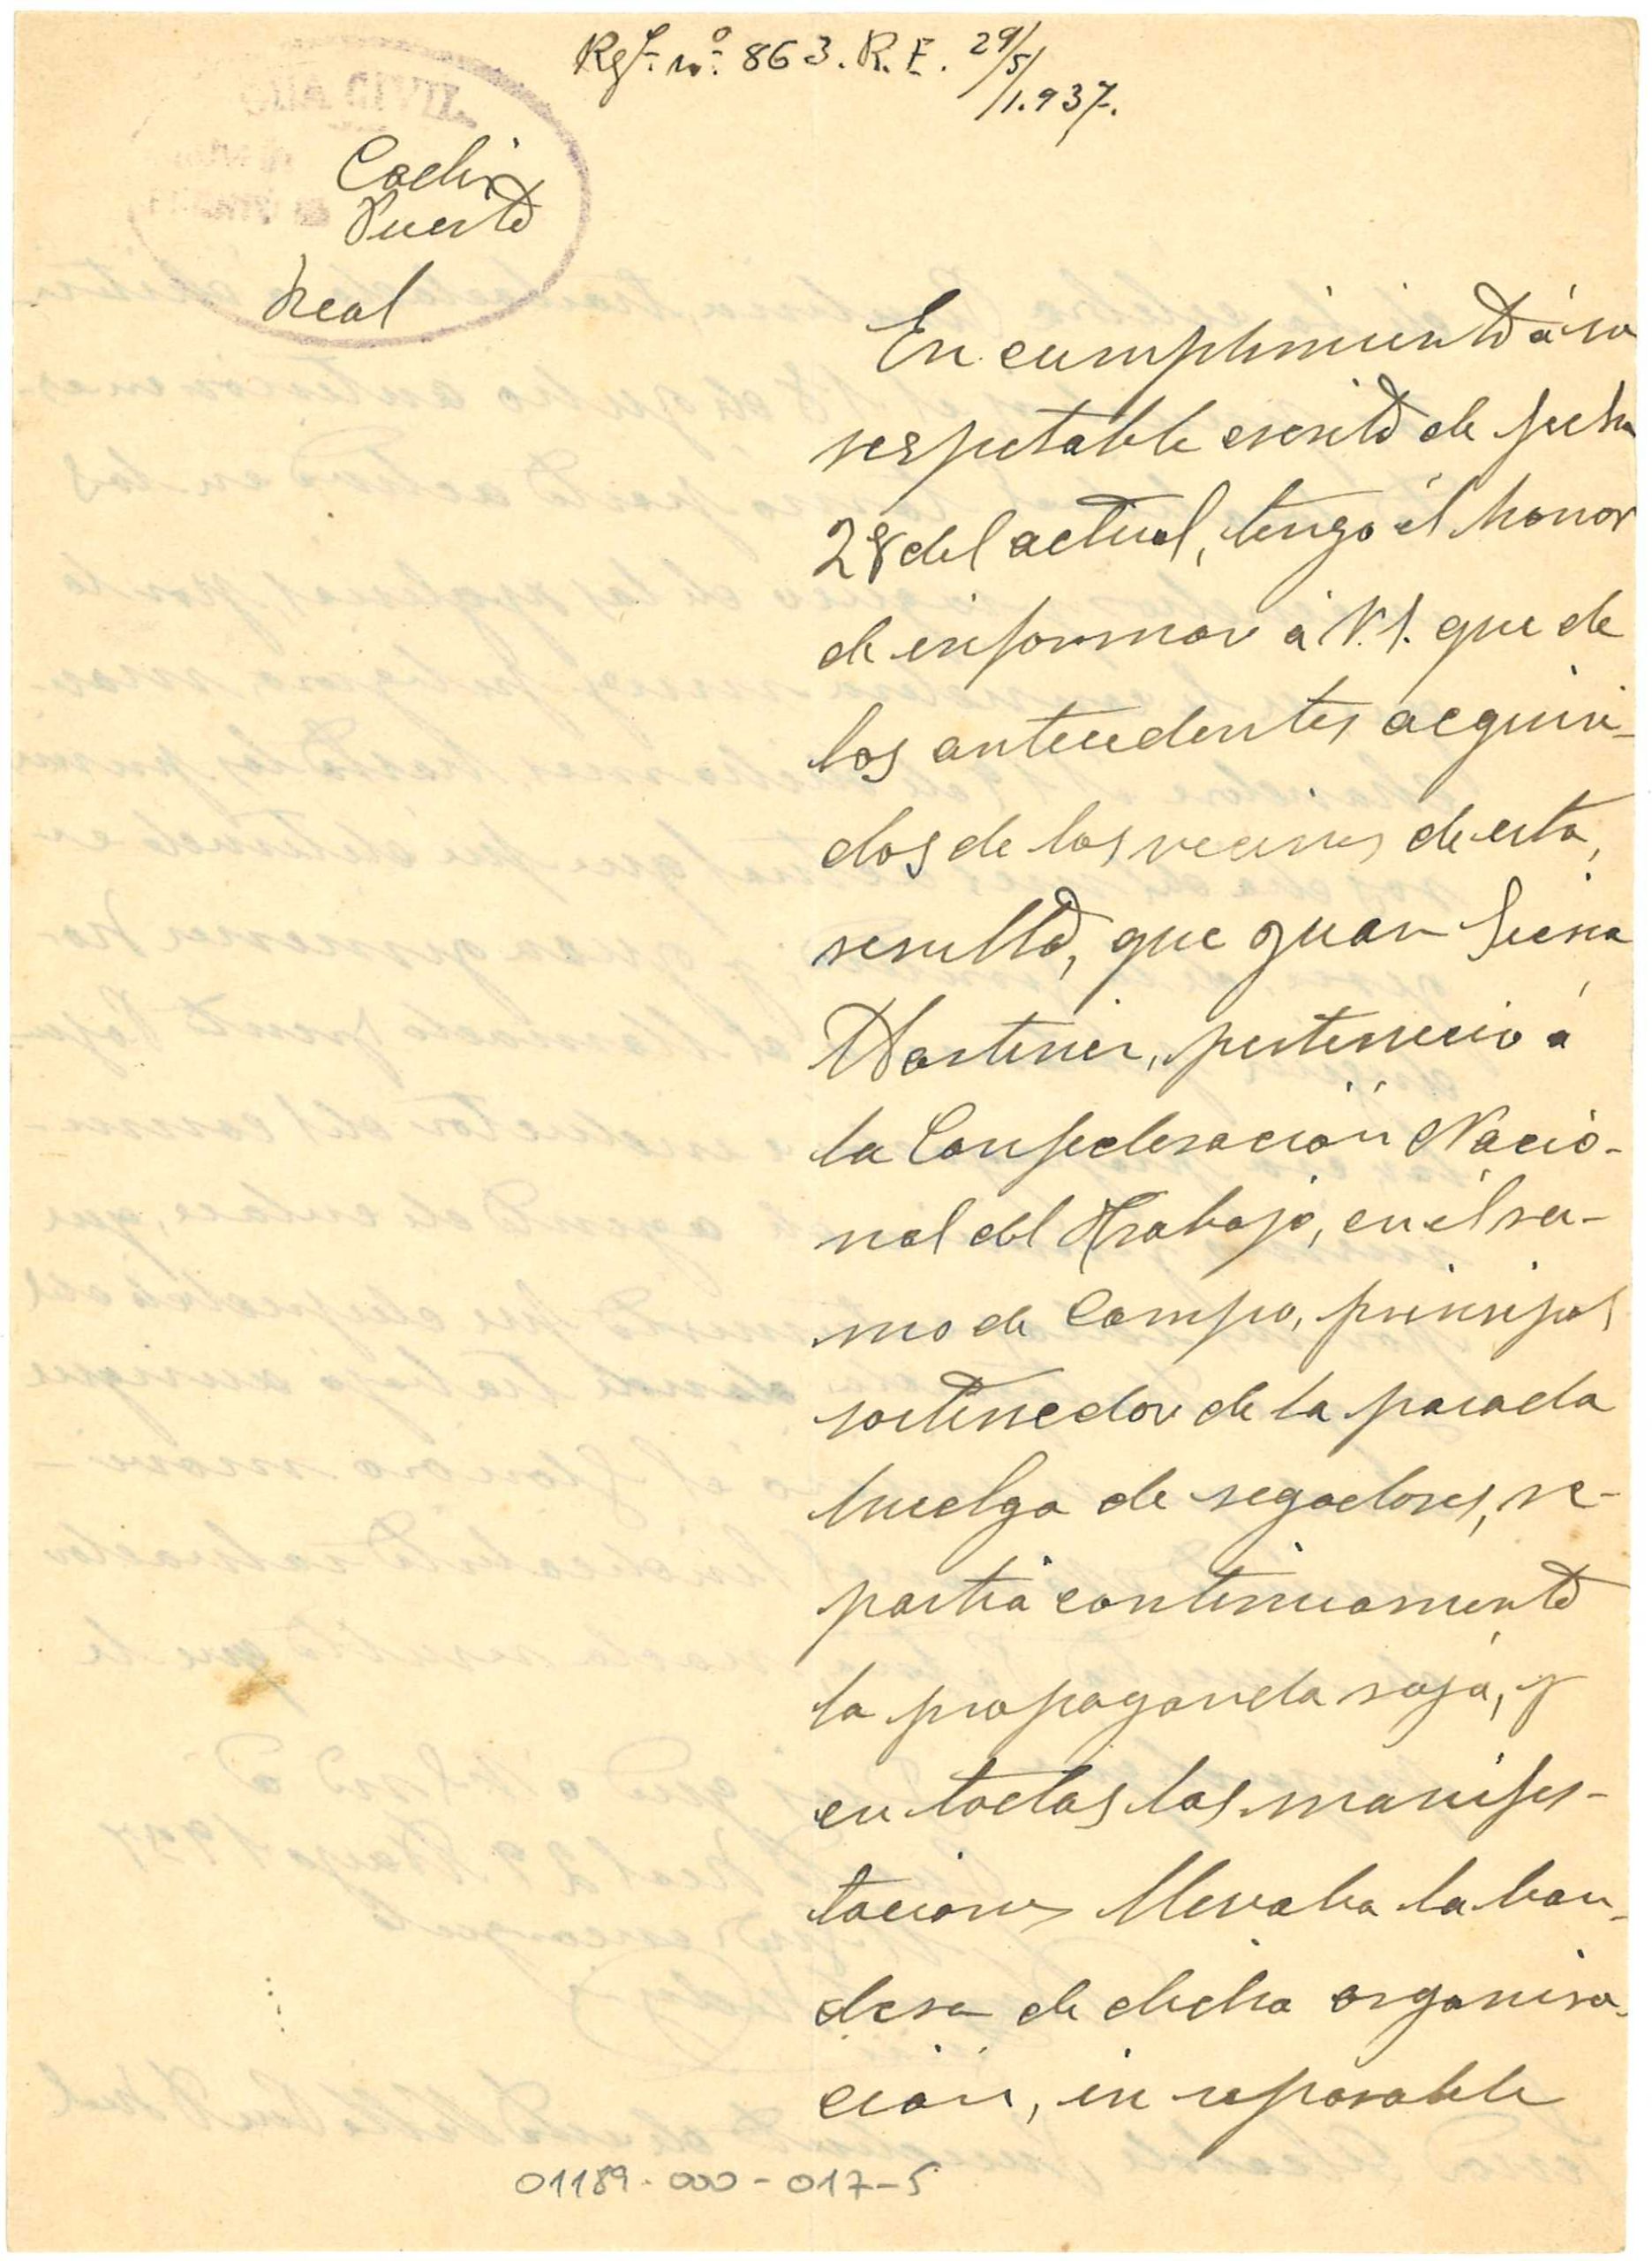 Regº. nº. 863. R.E. 29/5/1.937.
CIVIL
Cadiz
Puerto
Real
En cumplimiento á su
respetable escrito de fecha
28 del actual, tengo él honor
de informar á V.S. que de
los antecedentes acquiri-
dos de los vecinos de esta,
resulta, que Juan
Martinez, pertenecio á
la Confederación Nacio-
nal del Trabajo, en él ra-
mo de Campo, principal
sostenedor de la pasada
huelga de segadores, re-
partia continuamente
la propaganda roja, y
en todas las manifes-
taciones llevaba la ban-
dera de dicha organisa-
ción, in reparable
01189-000-017-5